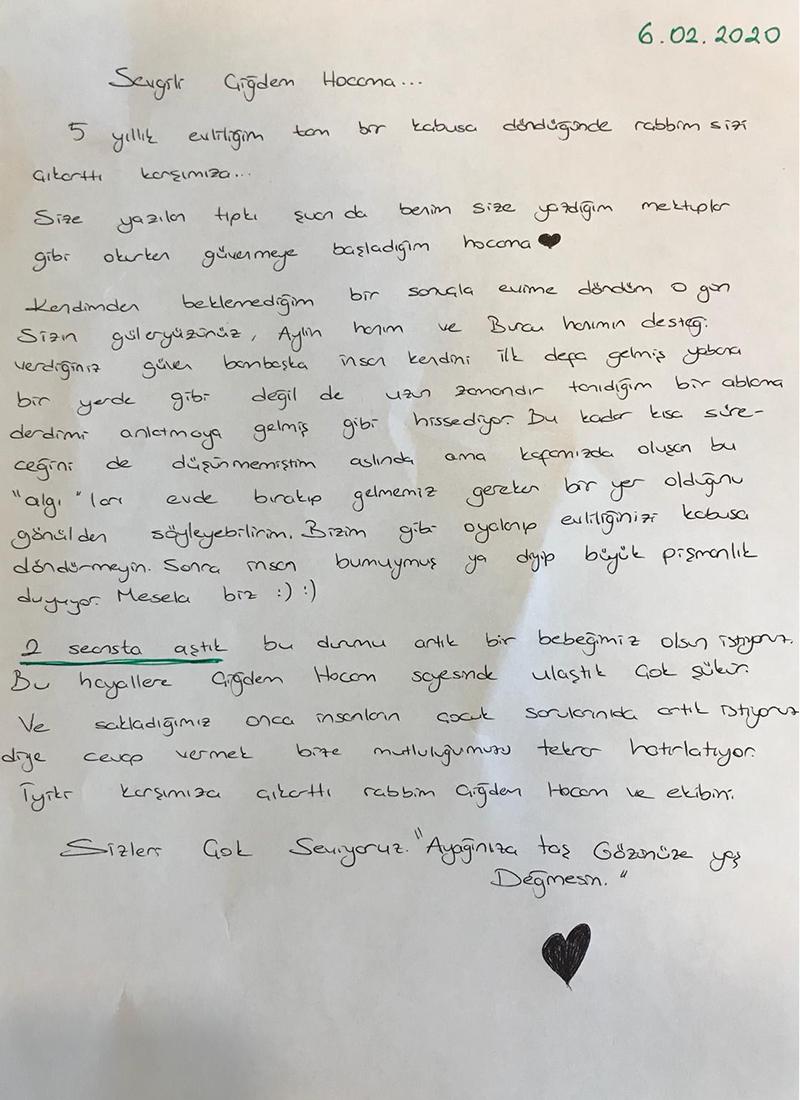 6.02.2020
Sevgili Çiğdem Hocama...
5 yıllık evliliğim tam bir kabusa döndüğünde rabbim sizi
çıkarttı karşımıza...
Size yazılan tıpkı şuan da benim size yazdığım mektuplar
gibi okurken güvenmeye başladığım hocama ♥
Kendimden beklemediğim bir sonuçla evime döndüm o gün
Sizin güleryüzünüz, Aylin hanım ve Burcu hanımın desteği
verdiğiniz güven bambaşka insan kendini ilk defa gelmiş yabancı
bir yerde gibi değil de uzun zamandır tanıdığım bir ablama
derdimi anlatmaya gelmiş gibi hissediyor. Bu kadar kısa süre-
ceğini de düşünmemiştim aslında ama kafamızda oluşan bu
"algı" ları evde bırakıp gelmemiz gereken bir yer olduğunu
gönülden söyleyebilirim. Bizim gibi oyalanıp evliliğinizi kabusa
döndürmeyin. Sonra insan bumuymuş ya diyip büyük pişmanlık
duyuyor. Mesela biz :) :)
2 seansta aştık bu durmu artık bir bebeğimiz olsun istiyoruz.
Bu hayallere Çiğdem Hocam sayesinde ulaştık Çok şükür.
Ve sakladığımız onca insanların çocuk sorularınıda artık istiyoruz
diye cevap vermek bize mutluluğumuzu tekrar hatırlatıyor.
İyiki karşımıza çıkarttı rabbim Çiğdem Hocam ve ekibini.
Sizleri Çok Seviyoruz. "Ayağınıza taş Gözünüze yaş
Değmesin."